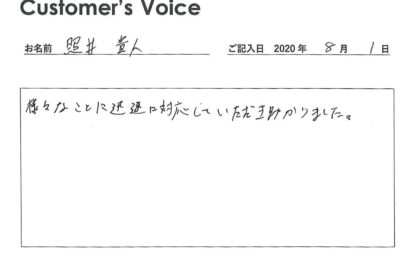 Customer's Voice
お名前 照井 貴人 ご記入日 2020 年 8 月 1 日
様々なことに迅速に対応していただき助かりました。